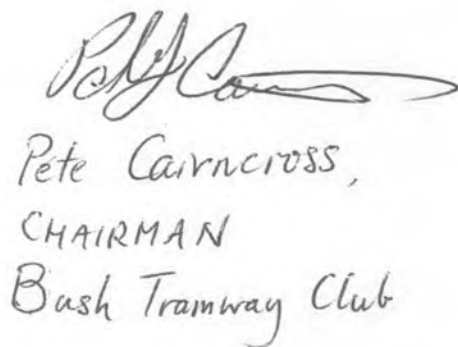 Pete Cairncross,
CHAIRMAN
Bush Tramway Club